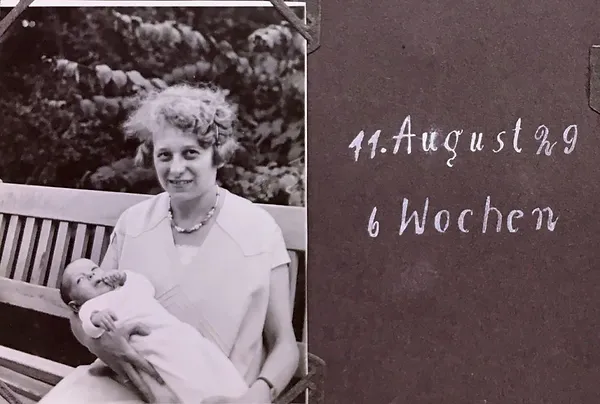 11. August 29
6 Wochen